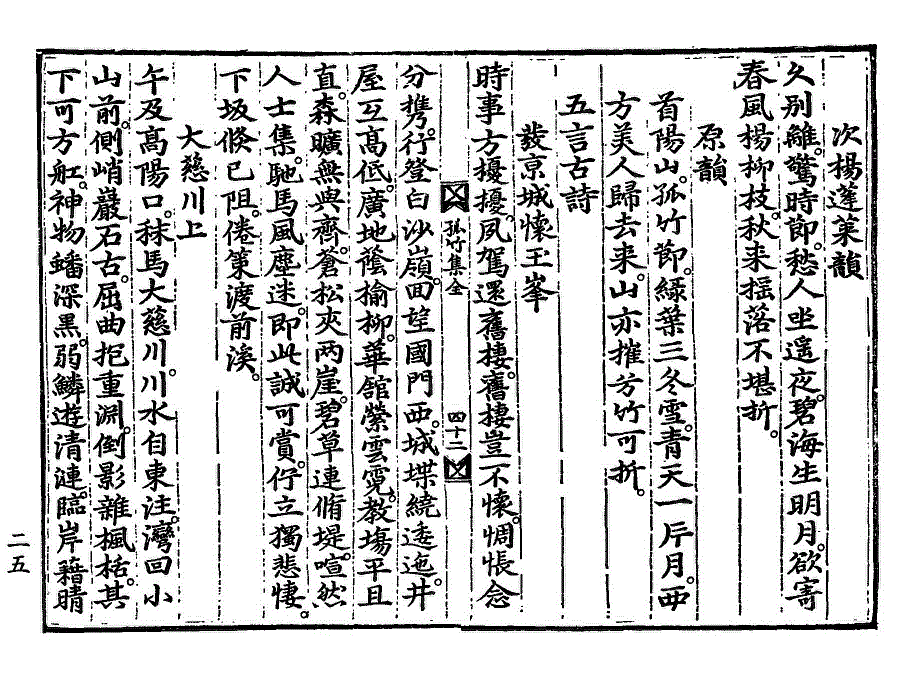 次楊蓬萊韻
久別離。驚時節。愁人坐遥夜。碧海生明月。欲寄
春風楊柳枝。秋来揺落不堪折。
原韻
首陽山。孤竹節。綠葉三冬雪。青天一片月。西
方美人歸去来。山亦摧兮竹可折。
五言古詩
發京城懷玉峯
時事方擾擾。夙駕還舊棲。舊棲豈不懷。惆悵念
孤竹集全
四十二
分携。行登白沙嶺。回望國門西。城堞繞逶迤。井
屋互髙低。廣地蔭榆柳。華舘縈雲霓。教塲平且
直。森曠無與齊。蒼松夾两崖。碧草連脩堤。喧然
人士集。馳馬風塵迷。即此誠可賞。佇立獨悲悽。
下坂倐已阻。倦策渡前溪。
大慈川上
午及髙陽口。秣馬大慈川。川水自東注。灣回小
山前。側峭巖石古。屈曲抱重淵。倒影雜楓栝。其
下可方舡。神物蟠深黑。弱鱗遊清漣。臨岸藉晴
二五